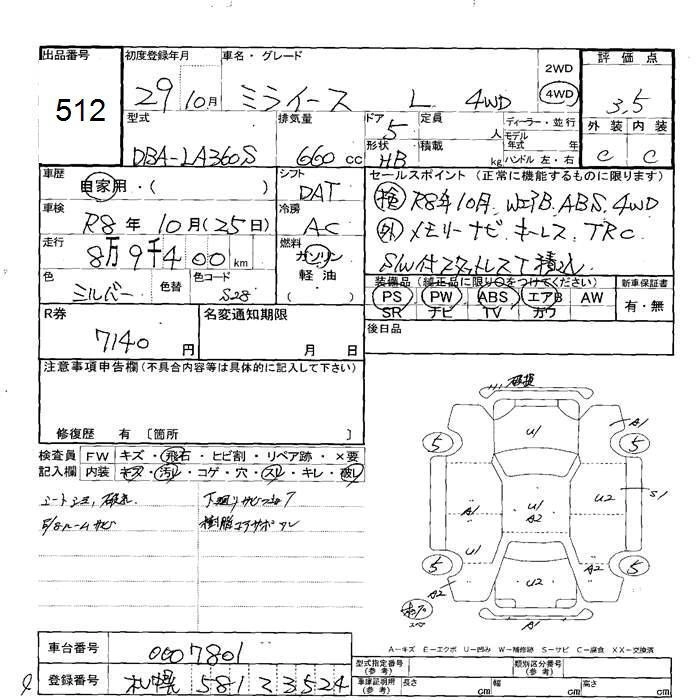 出品番号 初度登録年月 車名・グレード 評価点
512 29 10月 ミライース L 4WD 2WD 4WD 3.5
型式 排気量 ドア 定員 ディーラー・並行 外装 内装
DBA-LA360S 660 cc 5 人 モデル年式 年 C C
形状 積載
HB kg ハンドル 左・右
車歴 シフト セールスポイント (正常に機能するものに限ります)
自家用・( ) DAT
車検 冷房 検 R8年10月 WエアB.ABS.4WD
R8年10月(25日) AC 外 メモリーナビ キーレス TRC
走行 燃料 S/W付スタッドレスT積込
8万9千400km ガソリン
色 色替 色コード 軽油
シルバー S28 ( )
装備品 (純正品に限り○をつけてください) 新車保証書
PS PW ABS エアB AW 有・無
SR ナビ TV カワ
R券 名変通知期限 後日品
7140円 月 日
注意事項申告欄(不具合内容等は具体的に記入して下さい)
修復歴 有 〔箇所 〕
検査員 FW キズ・飛石・ヒビ割・リペア跡・×要
記入欄 内装 キズ・汚レ・コゲ・穴・スレ・キレ・破レ
下廻りサビ
E/gルームサビ
破損
U1 A1
5 5
A1 U1 A2 U2 S1
U1 A2
5 5
A2 U2 A2
A1
A-キズ E-エクボ U-凹み W-補修跡 S-サビ C-腐食 XX-交換済
車台番号 0007801
型式指定番号(参考) 類別区分番号(参考)
登録番号 札幌 581 ヒ 3524
車庫証明用(参考) 長さ cm 幅 cm 高さ cm